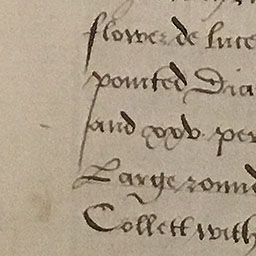 flower de luce
pointed Dia
and xxv per
Large round
Collett with